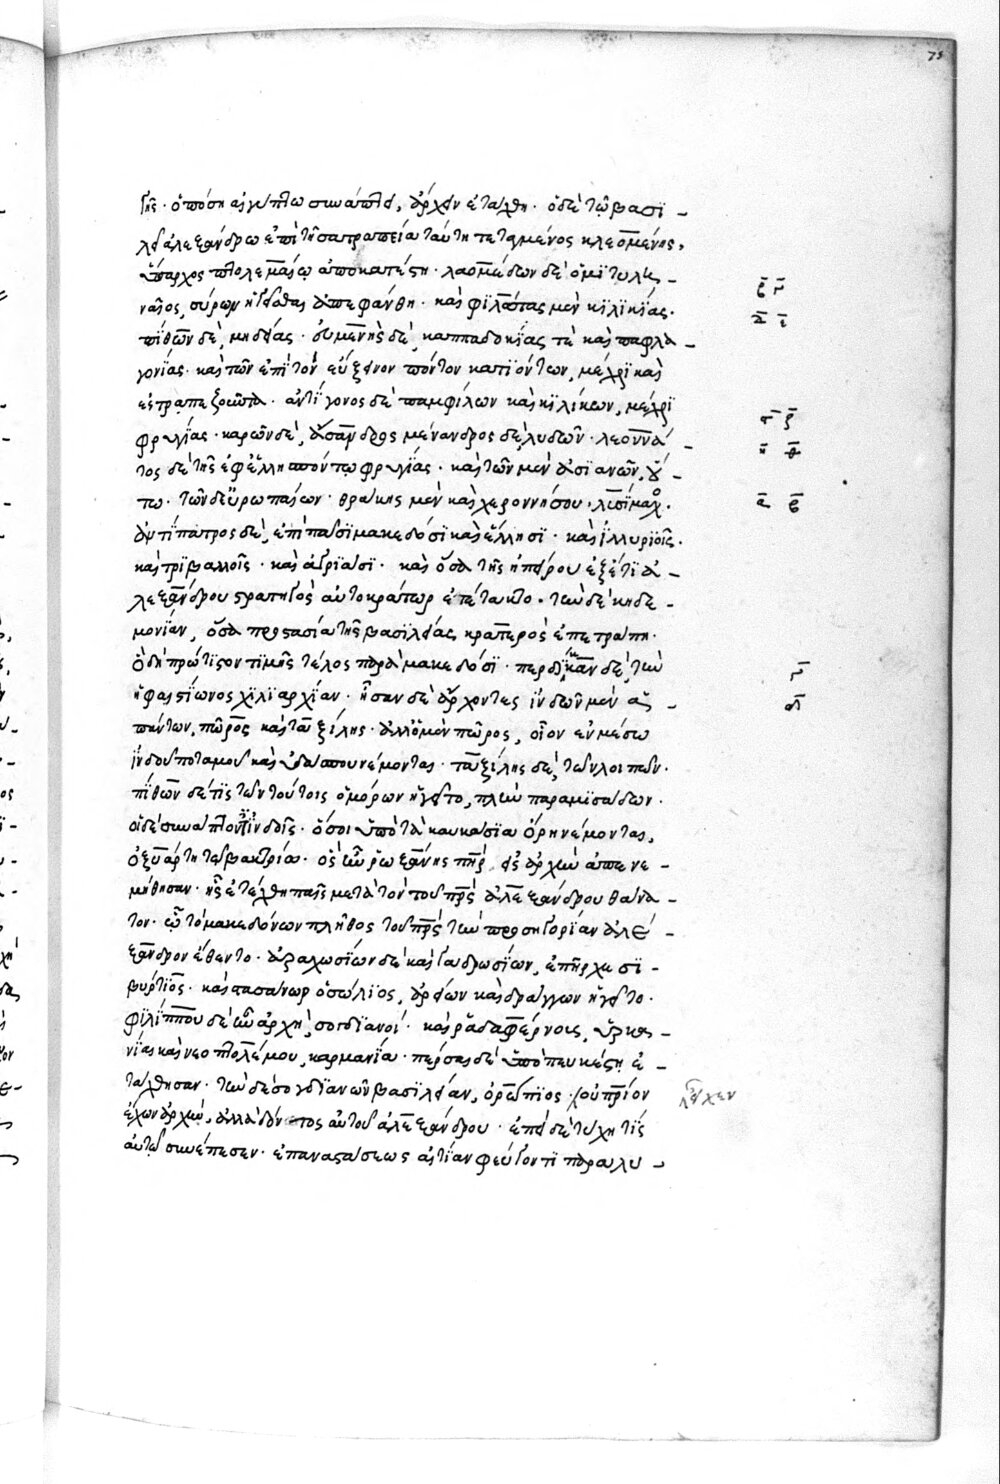 75
γῆς · ὁπόση αἰγύπτω συνάπτει, ἄρχειν ἐτάχθη · ὁ δὲ τῶ βασι -
λεῖ ἀλεξάνδρω ἐπὶ τῆ σατραπεία ταύτη τεταγμένος κλεομένης,
ὕπαρχος πτολεμαίω ἀποκατέστη · λαομέδων δὲ ὁ μιτυλη -
ναῖος, σύρων ἡγεῖσθαι ἀπεφάνθη · καὶ φιλώτας μὲν κιλικίας ·
πίθων δὲ, μηδίας · εὐμένης δὲ, καππαδοκίας τὲ καὶ παφλα -
γονίας · καὶ τῶν ἐπὶ τὸν εὔξεινον πόντον κατιόντων, μέχρι καὶ
ἐς τραπεζοῦντα · ἀντίγονος δὲ παμφίλων καὶ κιλίκων, μέχρι
φρυγίας · καρῶν δὲ, ἄσανδρος μένανδρος δὲ, λυδῶν · λεοννά -
τος δὲ τῆς ἐφ' ἑλλησπόντω φρυγίας · καὶ τῶν μὲν ἀσιανῶν, οὕ -
τω · τῶν δὲ εὐρωπαίων · θράκης μὲν καὶ χερονήσου · λυσίμαχος ·
ἀντίπατρος δὲ, ἐπὶ πᾶσι μακεδόσι καὶ ἕλλησι · καὶ ἰλλυριοῖς ·
καὶ τριβαλλοῖς · καὶ ἀγρίασι · καὶ ὅσα τῆς ἠπείρου ἐξέτι ἀ -
λεξάνδρου στρατηγὸς αὐτοκράτωρ ἐτέτακτο · τὴν δὲ κηδε -
μονίαν, ὅσα προστασία τῆς βασιλείας, κρατερὸς ἐπετράπη ·
ὃ δὴ πρώτιστον τιμῆς τέλος παρὰ μακεδόσι · περδίκκαν δὲ, τὴν
ἡφαιστίωνος χιλιαρχίαν · ἦσαν δὲ ἄρχοντες ἰνδῶν μὲν ἁ -
πάντων, πῶρος καὶ ταξίλης · ἀλλ' ὁ μὲν πῶρος, οἷον ἐν μέσω
ἰνδοῦ ποταμοῦ καὶ ὑδάσπου νέμονται · ταξίλης δὲ, τῶν λοιπῶν ·
πίθων δέ τις τῶν τούτοις ὁμόρων ἡγεῖτο, πλὴν παραμισάδων ·
οἱ δὲ συνάπτοντες ἰνδοῖς · ὅσοι ὑπὸ τὰ καυκάσια ὄρη νέμονται,
ὀξυάρτη τῶ βακτρίω · οὗ ἦν ῥωξάνης πατὴρ εἰς ἀρχὴν ἀπενε -
μήθησαν · ἧς ἐτέχθη παῖς μετὰ τὸν τοῦ πατρὸς ἀλεξάνδρου θάνα -
τον · ὧ τὸ μακεδόνων πλῆθος τοῦ πατρὸς τὴν προσηγορίαν ἀλέ -
ξανδρον ἔθεντο · ἀραχωσίων δὲ καὶ γαδρωσίων, ἐπῆρχε σι -
βύρτιος · καὶ στασάνωρ ὁ σόλιος, ἀρείων καὶ δράγγων ἡγεῖτο ·
φιλίππου δὲ ἦν ἀρχὴ, σογδιανοί · καὶ ῥαδαφέρνους, ὑρκα -
νίας καὶ νεοπτολέμου, καρμανία · πέρσας δὲ ὑπὸ πευκέστη ἐ -
τάχθησαν · τὴν δὲ σογδιανῶν βασιλείαν, ὀρώπιος · οὐ πάτριον
ἔχων ἀρχὴν, ἀλλὰ δόντος αὐτοῦ ἀλεξάνδρου · ἐπεὶ δὲ τύχη τις
αὐτῶ συνέπεσεν · ἐπαναστάσεως αἰτίαν φεύγοντι παραλυ -